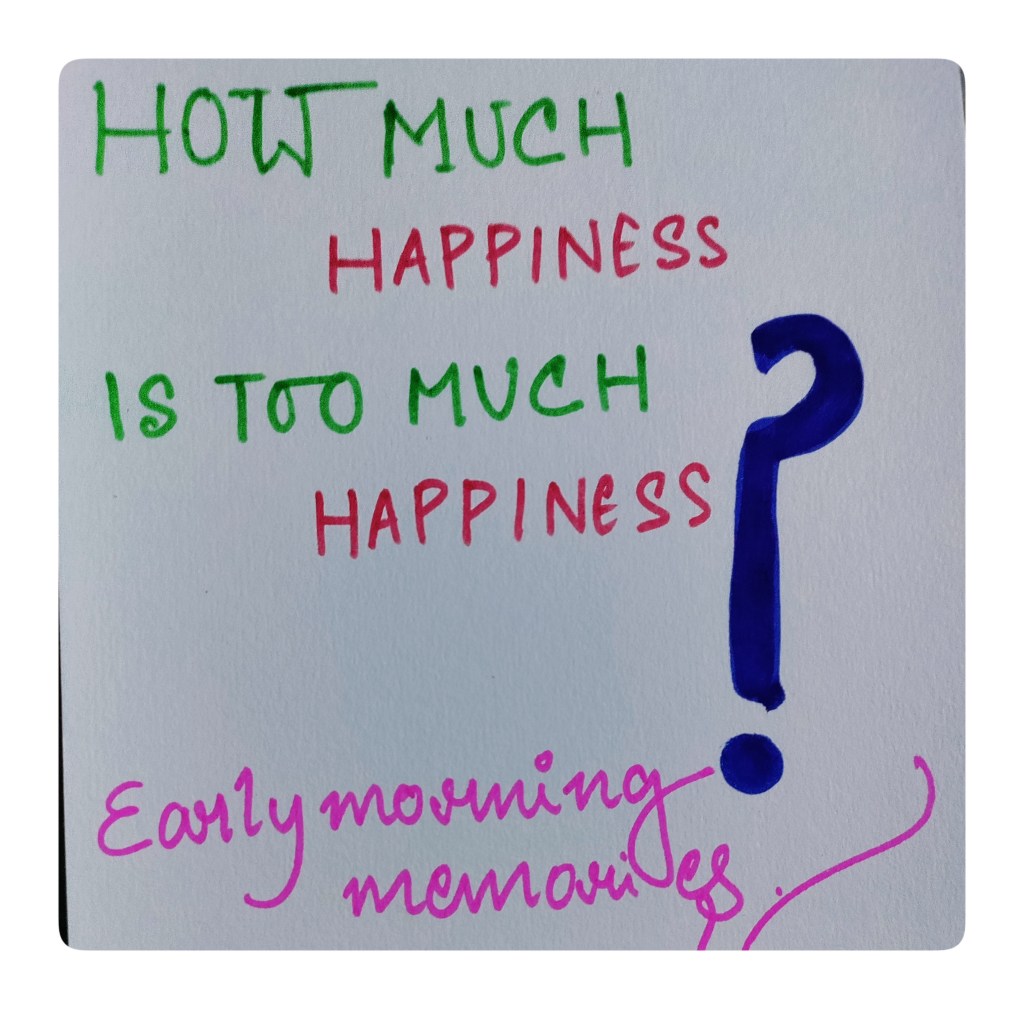 HOW MUCH
HAPPINESS
IS TOO MUCH
HAPPINESS?
Early morning
memories.